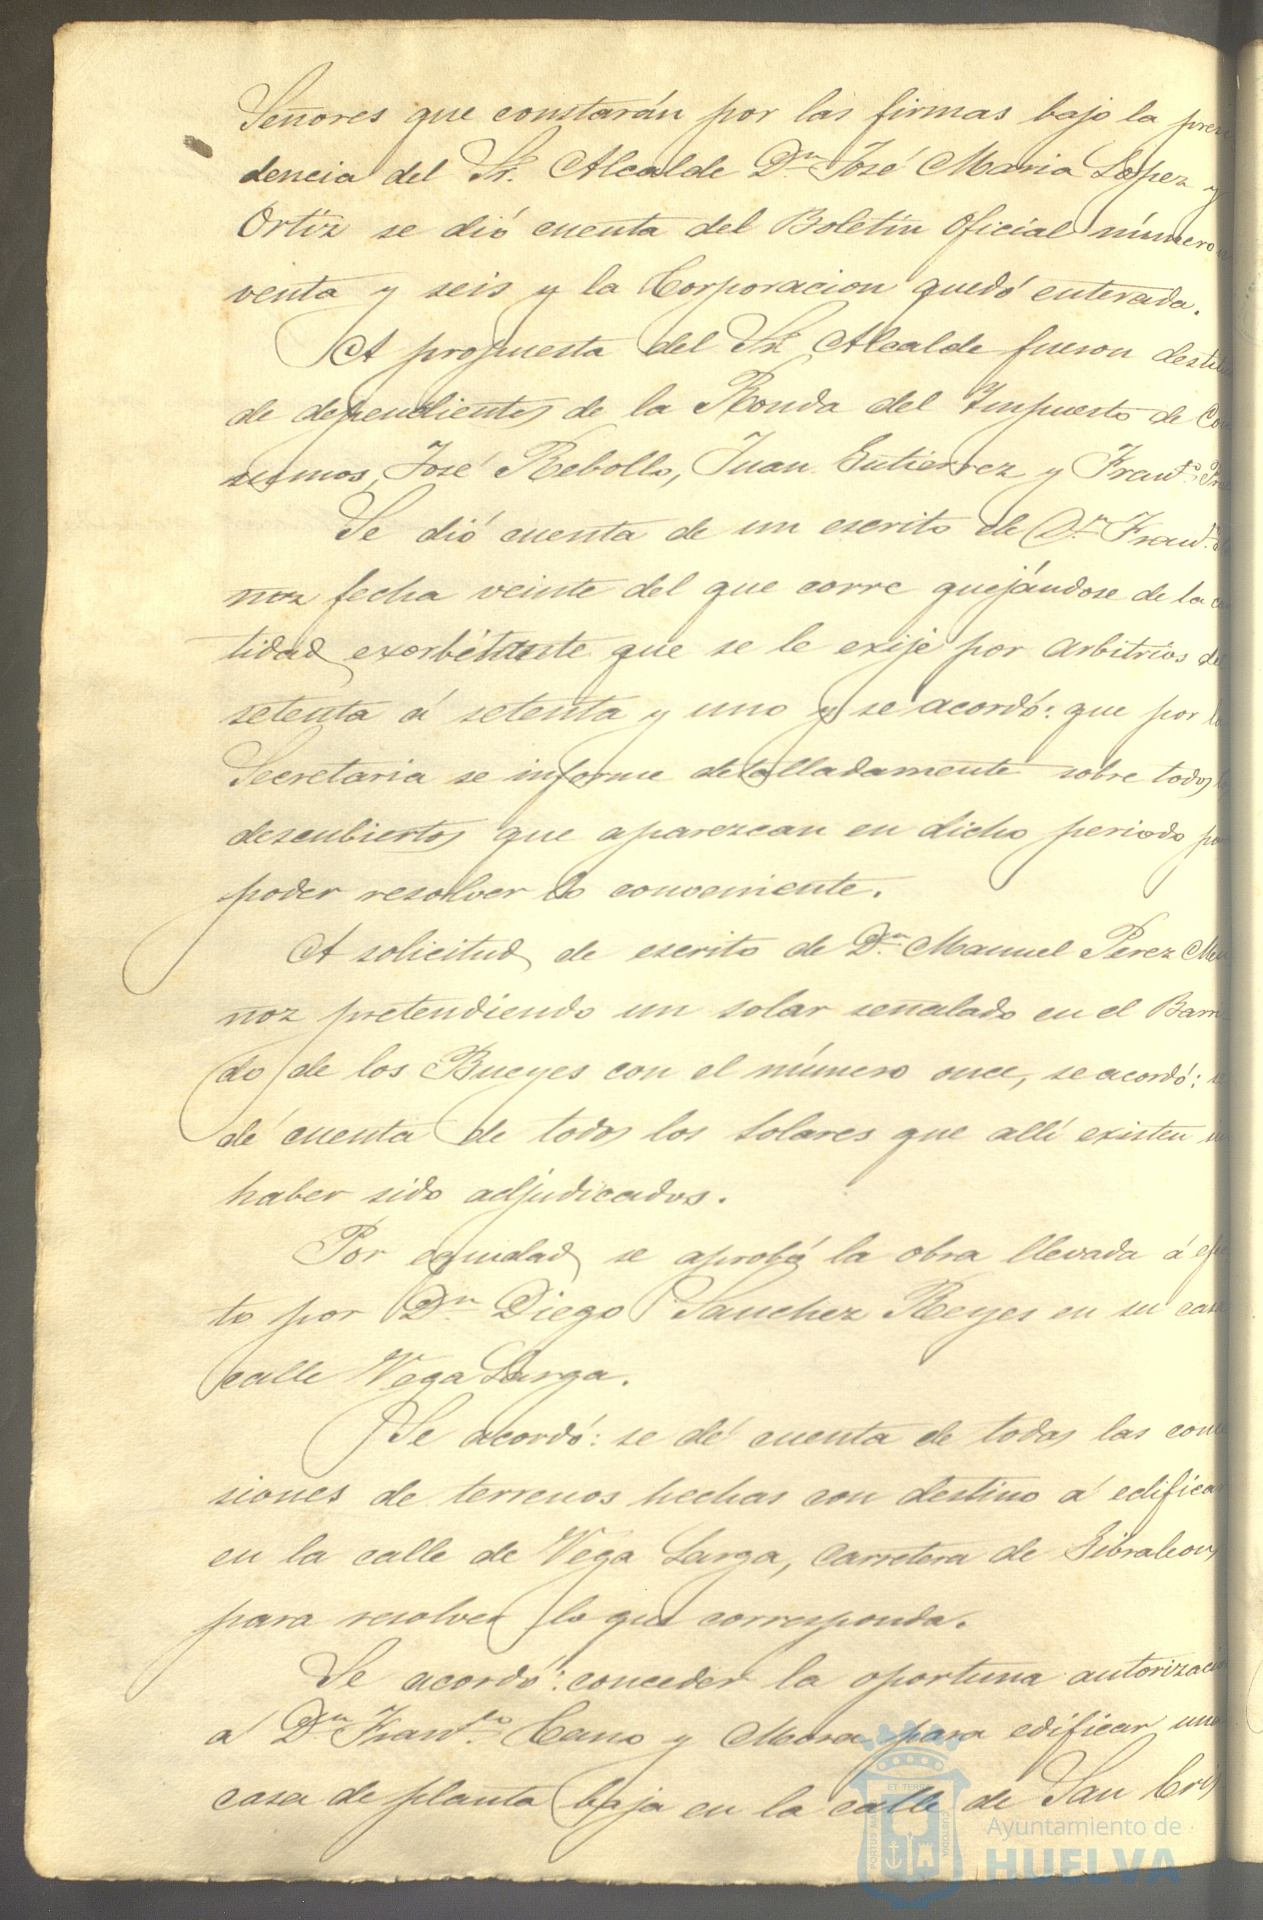 Señores que constarán por las firmas bajo la presi
dencia del Sr. Alcalde Dn. José Maria Lopez y
Ortiz se dió cuenta del Boletin Oficial número
venta y seis y la Corporacion quedó enterada.
A propuesta del Sr. Alcalde fueron destitui
de dependientes de la Ronda del Impuesto de Con
sumos, José Rebollo, Juan Gutierrez y Franco.
Se dió cuenta de un escrito de Dn. Franco.
noz fecha veinte del que corre quejándose de la can
tidad exorbitante que se le exije por arbitrios de
setenta á setenta y uno y se acordó: que por la
Secretaria se informe detalladamente sobre todos
descubiertos que aparezcan en dicho periodo pa
poder resolver lo conveniente.
A solicitud de escrito de Dn. Manuel Perez Mu
noz pretendiendo un solar señalado en el Barr
do de los Bueyes con el número once, se acordó: se
dé cuenta de todos los solares que allí existen sin
haber sido adjudicados.
Por equidad se aprobó la obra llevada á efec
to por Dn. Diego Sanchez Reyes en su casa
calle Vega Larga.
Se acordó: se dé cuenta de todas las conce
siones de terrenos hechas con destino á edificar
en la calle de Vega Larga, Carretera de Gibraleon,
para resolver lo que corresponda.
Se acordó: conceder la oportuna autorizació
á Dn. Franco. Cano y Mora para edificar una
casa de planta baja en la calle de San Cris
ET TERRÆ
PORTUS MARIS
CUSTODIA
Ayuntamiento de
HUELVA